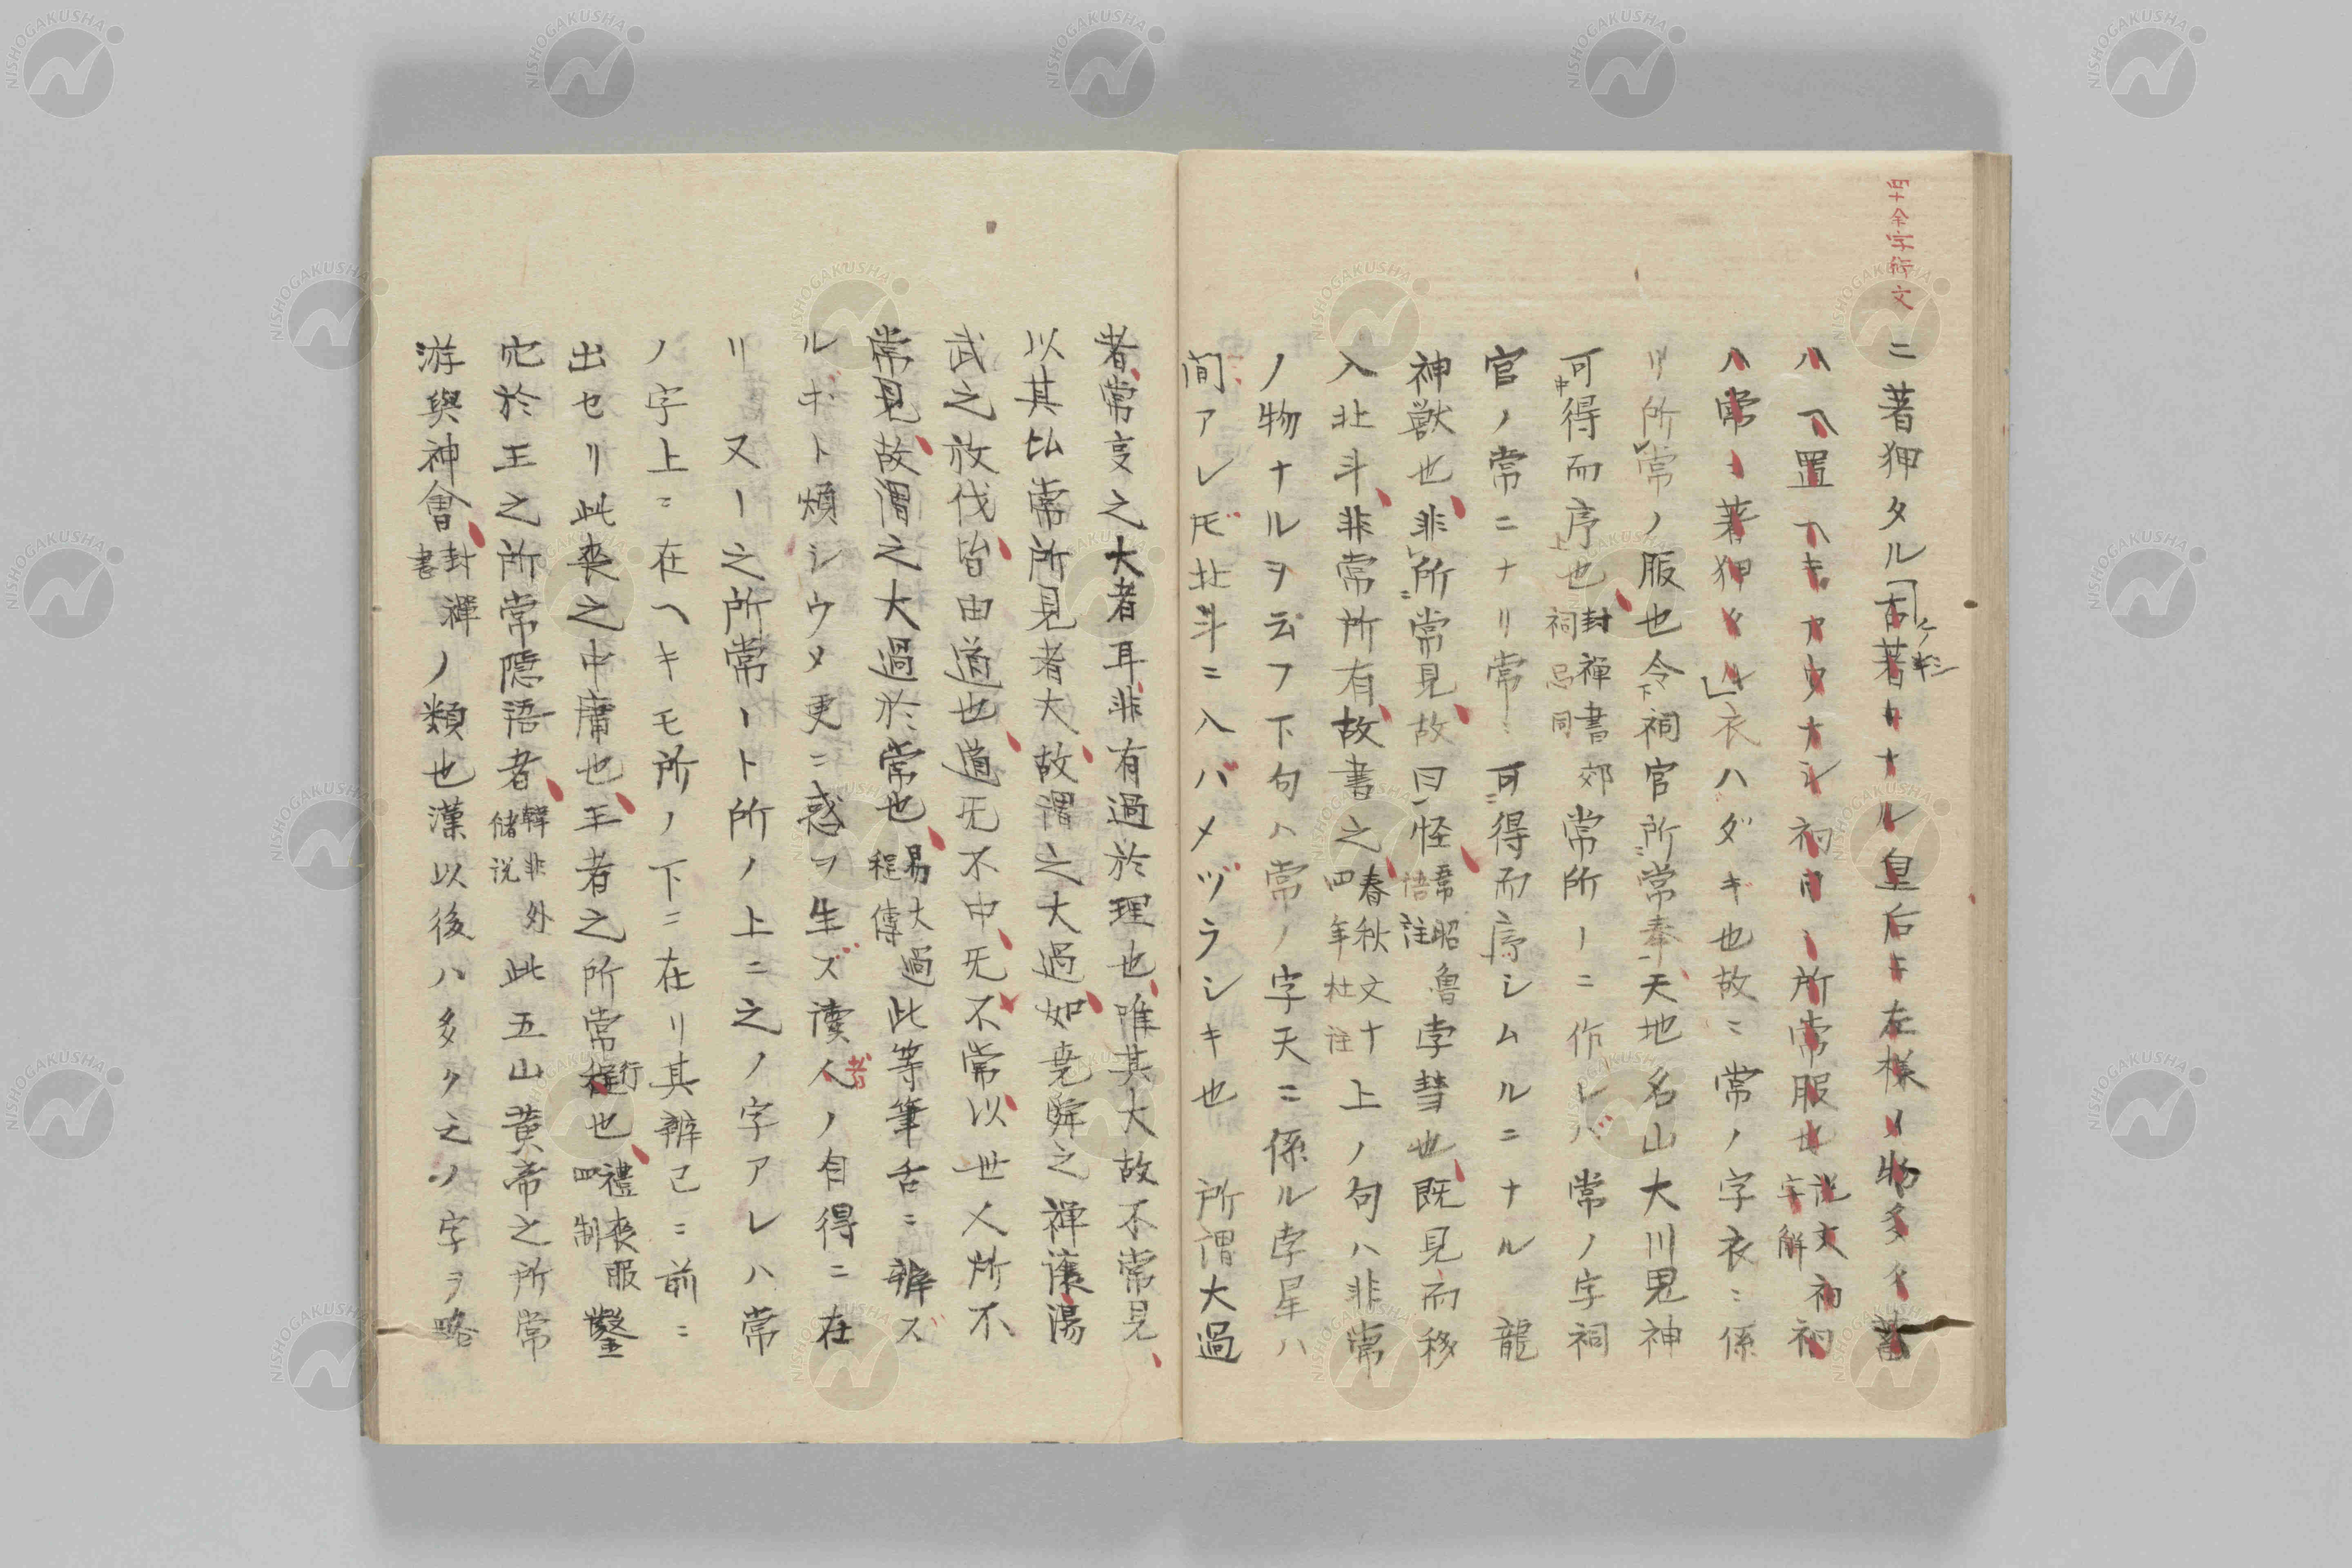 四十余字衍文
ニ著狎タル古著トナル皇后キ左様ノ物多イ著
ハヘ置ヘキアウナシ衵日々所常服也説文字解衵衵
ハ常ニ著狎タル衣ハダギ也故ニ常ノ字衣ニ係
リ所常ノ服也令祠官所常奉天地名山大川鬼神
可得而序也封禪書郊祠忌同常所ーニ作レハ常ノ字祠
官ノ常ニナリ常ニ可得而序シムルニナル龍
神獣也非所常見故曰怪韋昭魯語註孛彗也既見而移
入北斗非常所有故書之春秋文十四年杜註上ノ句ハ非常
ノ物ナルヲ云フ下句ハ常ノ字天ニ係ル孛星ハ
間アレドモ北斗ニ入バメヅラシキ也所謂大過
者常事之大者耳非有過於理也唯其大故不常見
以其比常所見者大故謂之大過如堯舜之禪讓湯
武之放伐皆由道也道无不中无不常以世人所不
常見故謂之大過於常也易大過程傳此等筆舌ニ辨ズ
ルホト煩シウメ更ニ惑ヲ生ズ讀人ノ自得ニ在
リ又ー之所常ート所ノ上ニ之ノ字アレハ常
ノ字上ニ在ヘキモ所ノ下ニ在リ其辨已ニ前ニ
出セリ此喪之中庸也王者之所常行也禮喪服四制鑿
穴於王之所常隠語者韓非外儲説此五山黄帝之所常
游與神會封禪書ノ類也漢以後ハ多ク之ノ字ヲ略